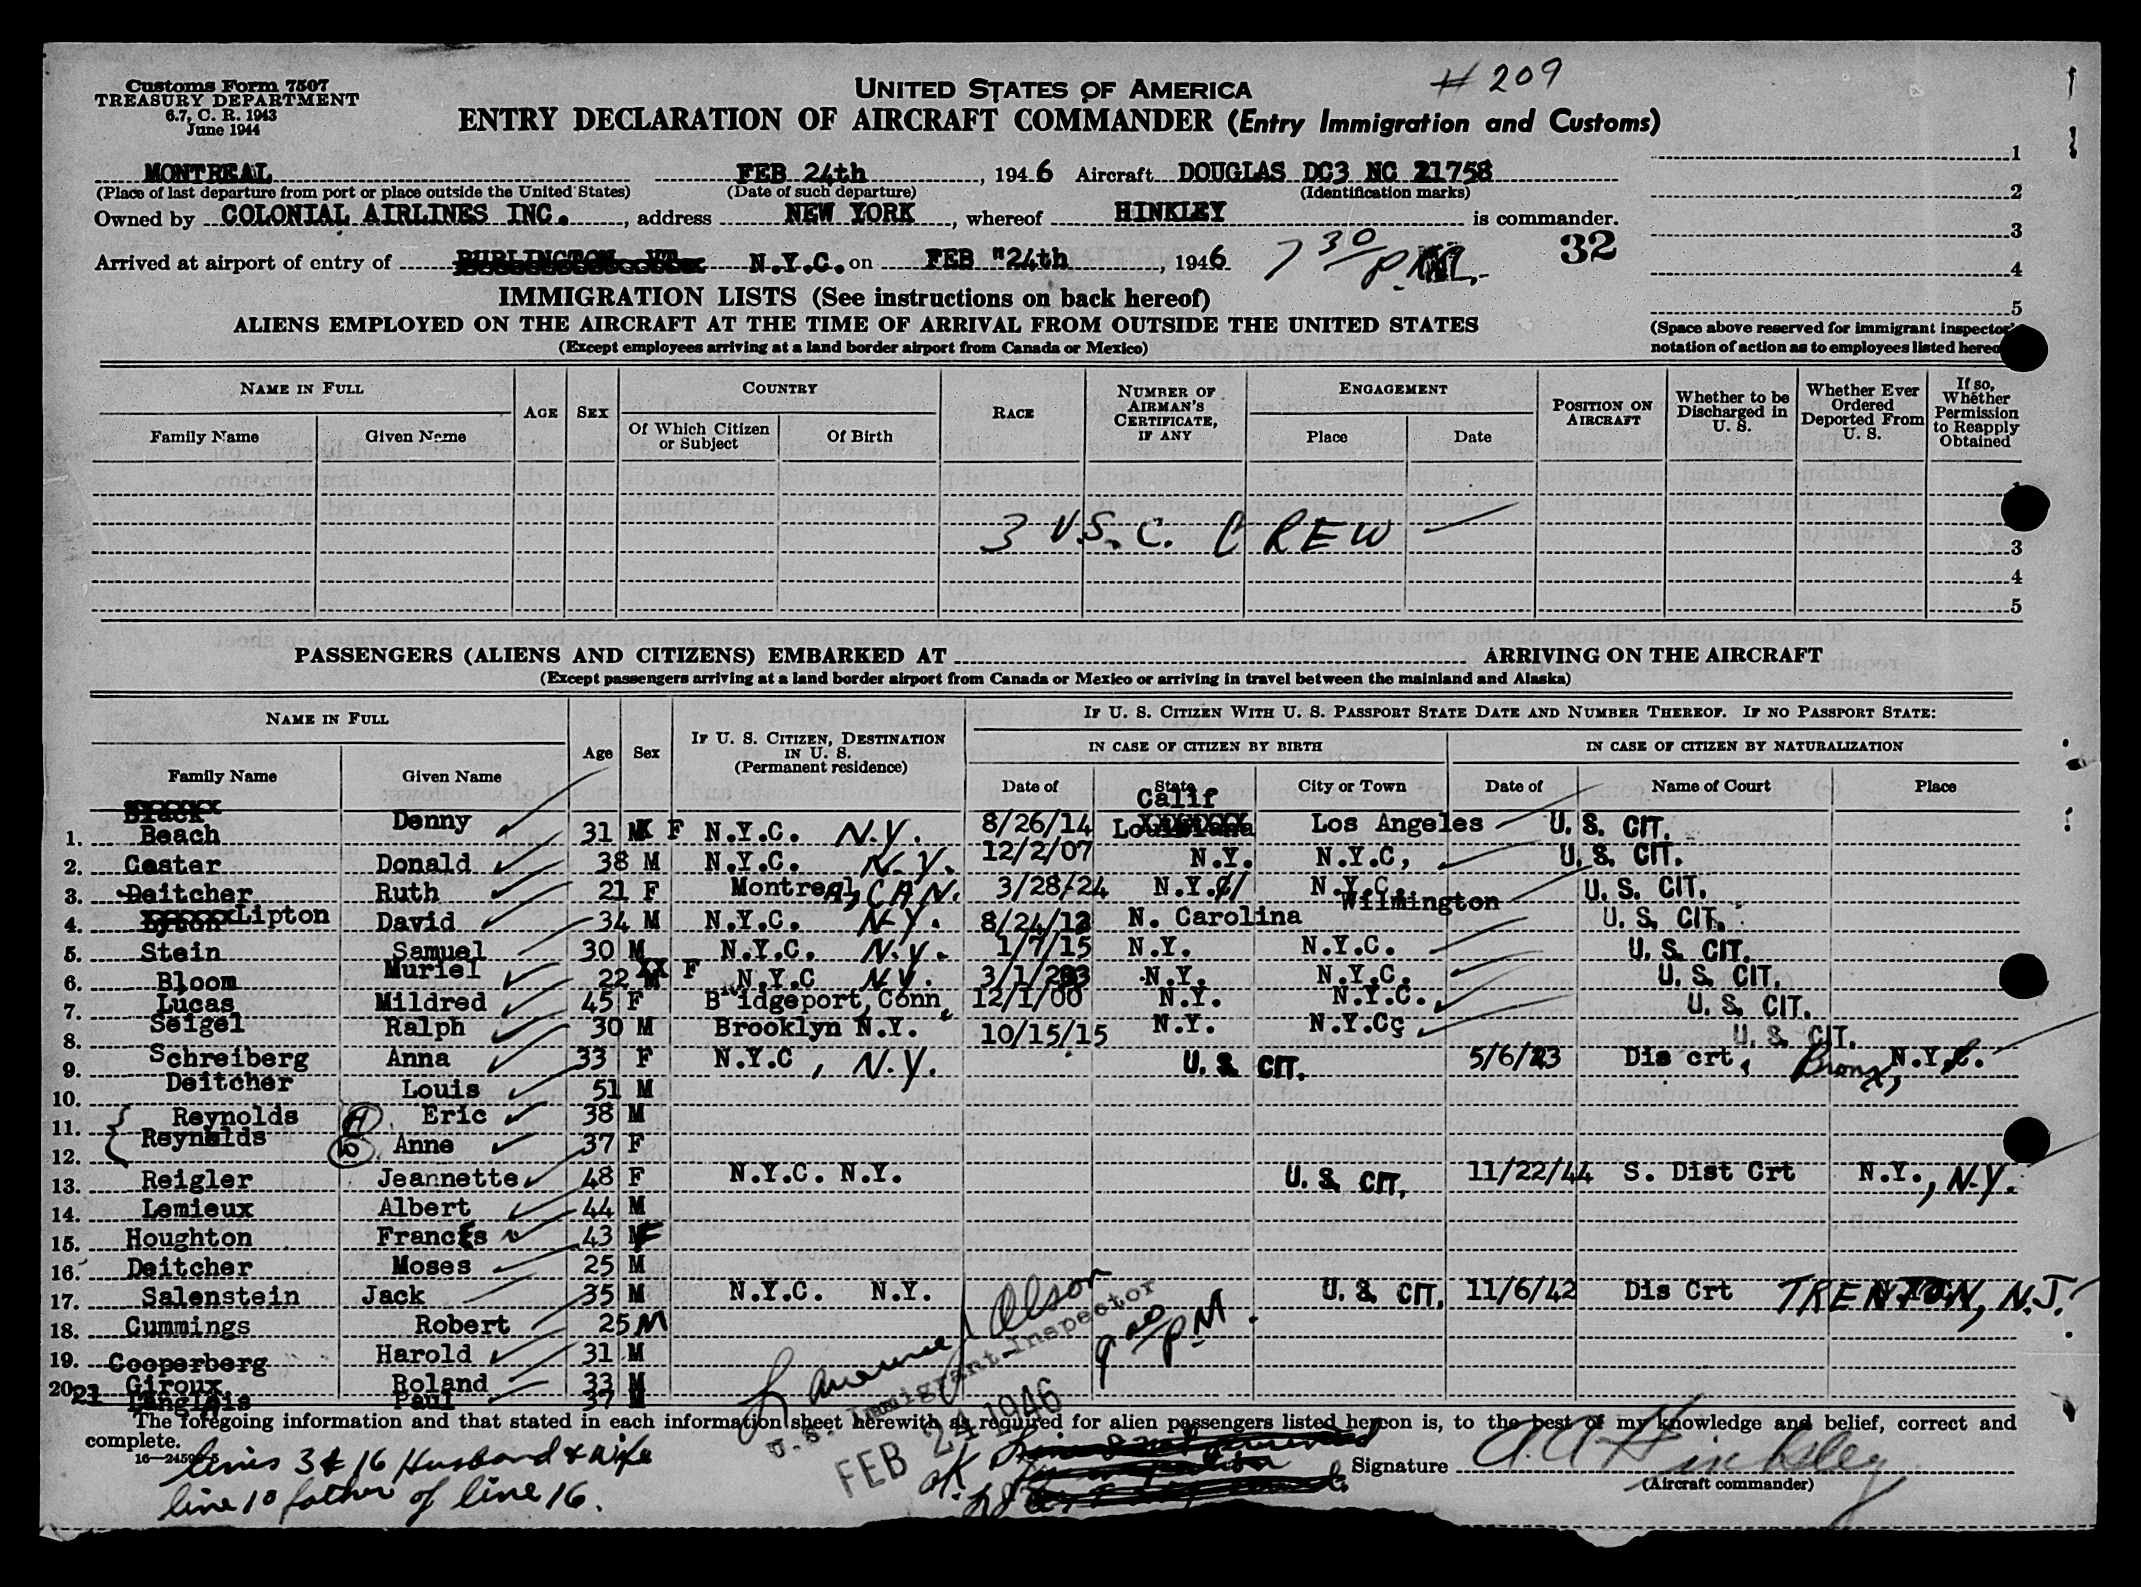 Customs Form 7507
TREASURY DEPARTMENT
6.7, C. R. 1943
June 1944
UNITED STATES OF AMERICA
# 209
ENTRY DECLARATION OF AIRCRAFT COMMANDER (Entry Immigration and Customs)
MONTREAL FEB 24th, 1946 Aircraft DOUGLAS DC3 NC 21758
(Place of last departure from port or place outside the United States) (Date of such departure) (Identification marks)
Owned by COLONIAL AIRLINES INC., address NEW YORK, whereof HINKLEY is commander.
Arrived at airport of entry of BURLINGTON VT N.Y.C. on FEB "24th, 1946 7 30/P.M. 32
1
2
3
4
5
(Space above reserved for immigrant inspector's
notation of action as to employees listed hereo
IMMIGRATION LISTS (See instructions on back hereof)
ALIENS EMPLOYED ON THE AIRCRAFT AT THE TIME OF ARRIVAL FROM OUTSIDE THE UNITED STATES
(Except employees arriving at a land border airport from Canada or Mexico)
NAME IN FULL AGE SEX COUNTRY RACE NUMBER OF AIRMAN'S CERTIFICATE, IF ANY ENGAGEMENT POSITION ON AIRCRAFT Whether to be Discharged in U. S. Whether Ever Ordered Deported From U. S. If so, Whether Permission to Reapply Obtained
Family Name Given Name Of Which Citizen or Subject Of Birth Place Date
3 U.S.C. CREW
3
4
5
PASSENGERS (ALIENS AND CITIZENS) EMBARKED AT ARRIVING ON THE AIRCRAFT
(Except passengers arriving at a land border airport from Canada or Mexico or arriving in travel between the mainland and Alaska)
NAME IN FULL Age Sex IF U. S. CITIZEN, DESTINATION IN U. S. (Permanent residence) IF U. S. CITIZEN WITH U. S. PASSPORT STATE DATE AND NUMBER THEREOF. IF NO PASSPORT STATE:
IN CASE OF CITIZEN BY BIRTH IN CASE OF CITIZEN BY NATURALIZATION
Family Name Given Name Date of State City or Town Date of Name of Court Place
1. Beach Denny 31 F N.Y.C. N.Y. 8/26/14 Calif Los Angeles U. S. CIT.
2. Caster Donald 38 M N.Y.C. N.Y. 12/2/07 N.Y. N.Y.C, U. S. CIT.
3. Deitcher Ruth 21 F Montreal, CAN. 3/28/24 N.Y. N.Y.C. U. S. CIT.
4. Lipton David 34 M N.Y.C. N.Y. 8/24/12 N. Carolina Wilmington U. S. CIT.
5. Stein Samuel 30 M N.Y.C. N.Y. 1/7/15 N.Y. N.Y.C. U. S. CIT.
6. Bloom Muriel 22 F N.Y.C N.Y. 3/1/23 N.Y. N.Y.C. U. S. CIT.
7. Lucas Mildred 45 F Bridgeport, Conn, 12/1/00 N.Y. N.Y.C. U. S. CIT.
8. Seigel Ralph 30 M Brooklyn N.Y. 10/15/15 N.Y. N.Y.Cç U. S. CIT.
9. Schreiberg Anna 33 F N.Y.C, N.Y. U. S. CIT. 5/6/23 Dis crt, Bronx, N.Y.
10. Deitcher Louis 51 M
11. Reynolds Eric 38 M
12. Reynolds Anne 37 F
13. Reigler Jeannette 48 F N.Y.C. N.Y. U. S. CIT. 11/22/44 S. Dist Crt N.Y., N.Y.
14. Lemieux Albert 44 M
15. Houghton Frances 43 F
16. Deitcher Moses 25 M
17. Salenstein Jack 35 M N.Y.C. N.Y. U. S. CIT. 11/6/42 Dis Crt TRENTON, N.J.
18. Cummings Robert 25 M
19. Cooperberg Harold 31 M
20. Giroux Roland 33 M
21 Langlais Paul 37 M
Lawrence J Olson
U.S. Immigrant Inspector
FEB 24 1946
9 00/PM.
The foregoing information and that stated in each information sheet herewith as required for alien passengers listed hereon is, to the best of my knowledge and belief, correct and
complete.
16—24590-5
lines 3 & 16 Husband & wife
line 10 father of line 16.
OK
Signature A.A. Hinkley
(Aircraft commander)